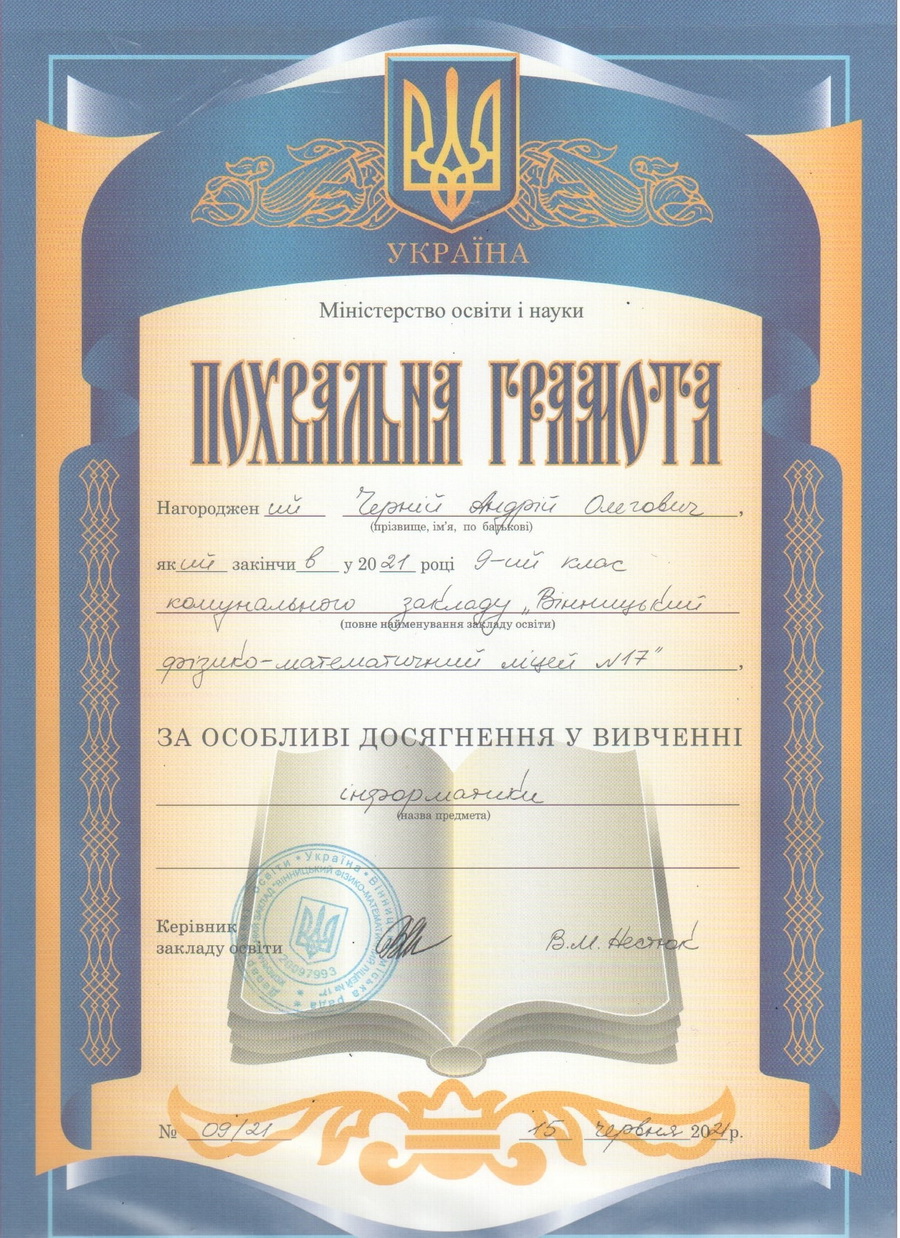 УКРАЇНА
Міністерство освіти і науки
ПОХВАЛЬНА ГРАМОТА
Нагороджен ий Черній Андрій Олегович,
(прізвище, ім’я, по батькові)
який закінчив у 2021 році 9-ий клас
комунального закладу „Вінницький
(повне найменування закладу освіти)
фізико-математичний ліцей №17”,
ЗА ОСОБЛИВІ ДОСЯГНЕННЯ У ВИВЧЕННІ
інформатики
(назва предмета)
Керівник
закладу освіти В.М. Нестюк
Україна
20097993
№ 09/21 15 червня 2021р.